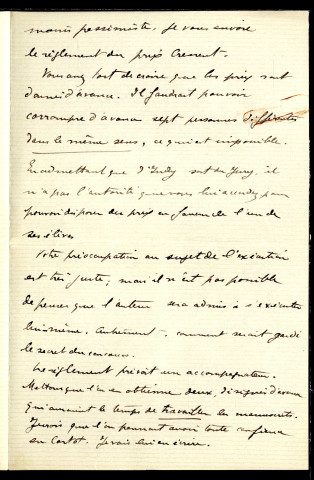 moins pessimiste, je vous envoie
le règlement du prix Cressent.
Vous avez tort de croire que les prix sont
donnés d'avance. Il faudrait pouvoir
corrompre d'avance sept personnes différentes
dans le même sens, ce qui est impossible.
En admettant que d'Indy soit du Jury, il
n'a pas l'autorité que vous lui accordez pour
pouvoir disposer du prix en faveur de l'un de
ses élèves.
Votre préoccupation au sujet de l'exécution
est très juste, mais il n'est pas possible
de penser que l'auteur sera admis à s'exécuter
lui-même. Autrement, comment serait gardé
le secret du concours.
Le règlement prévoit un accompagnateur.
Mettons que l'on en obtienne deux, désignés d'avance
qui auraient le temps de travailler les manuscrits.
Je crois que l'on pourrait avoir toute confiance
en Cortot. Je vais lui en écrire.